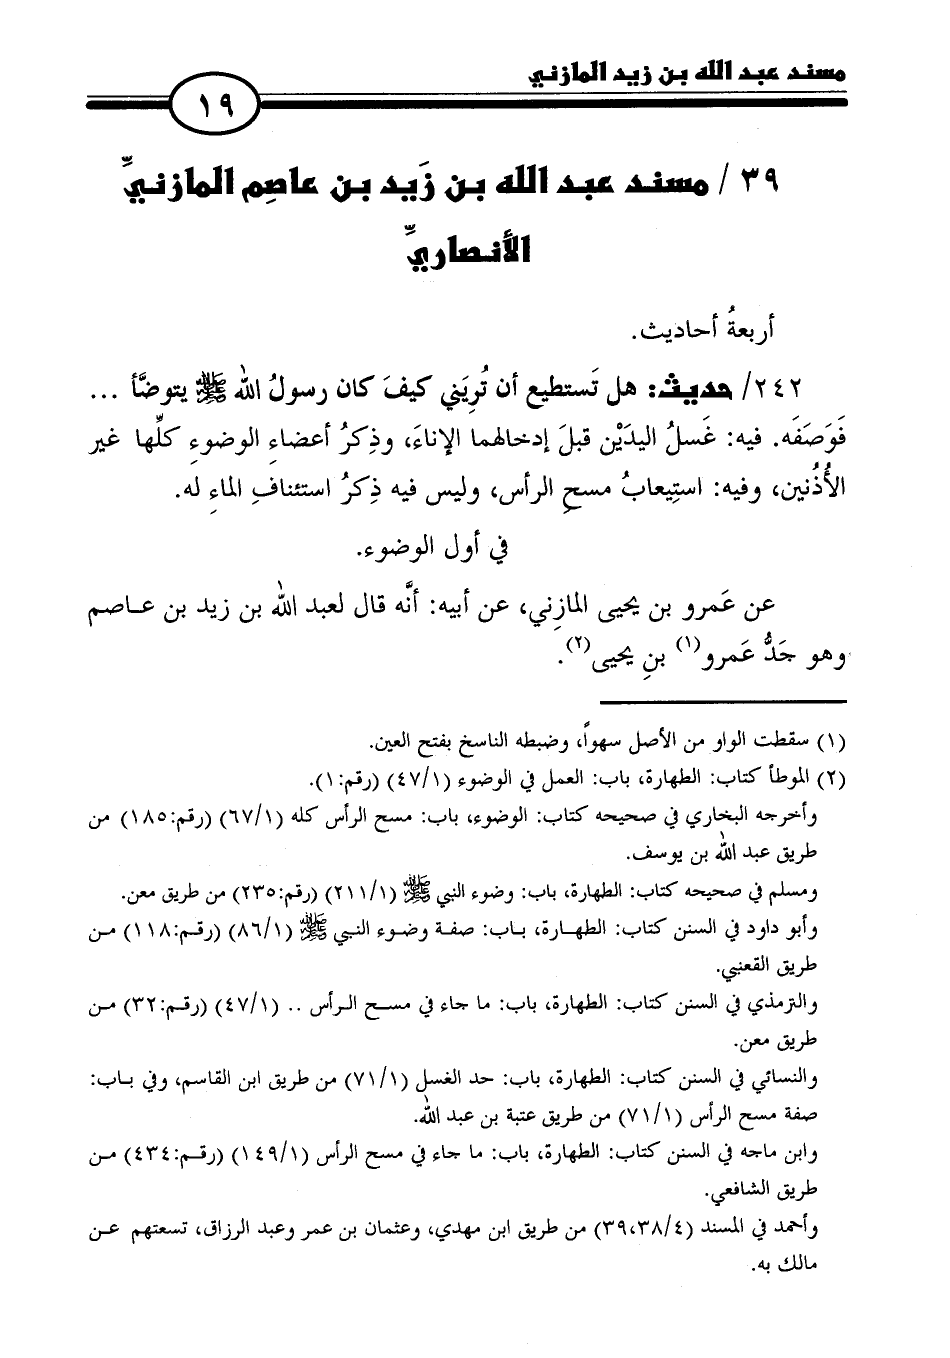 مسند عبد الله بن زيد المازني
١٩
٣٩ / مسند عبد الله بن زَيد بن عاصِم المازنيِّ
الأنصاريِّ
أربعةُ أحاديث.
٢٤٢/ حديث: هل تَستطيع أن تُرِيَني كيفَ كان رسولُ الله ﷺ يتوضَّأ ...
فَوَصَفَه. فيه: غَسلُ اليدَيْن قبلَ إدخالهما الإناءَ، وذِكرُ أعضاءِ الوضوءِ كلِّها غير
الأُذُنين، وفيه: استِيعابُ مسحِ الرأس، وليس فيه ذِكرُ استئنافِ الماءِ له.
في أول الوضوء.
عن عَمرو بن يحيى المازِني، عن أبيه: أنَّه قال لعبد الله بن زيد بن عاصم
وهو جَدُّ عَمرو(١) بنِ يحيى(٢).
(١) سقطت الواو من الأصل سهواً، وضبطه الناسخ بفتح العين.
(٢) الموطأ كتاب: الطهارة، باب: العمل في الوضوء (٤٧/١) (رقم:١).
وأخرجه البخاري في صحيحه كتاب: الوضوء، باب: مسح الرأس كله (٦٧/١) (رقم:١٨٥) من
طريق عبد الله بن يوسف.
ومسلم في صحيحه كتاب: الطهارة، باب: وضوء النبي ﷺ (٢١١/١) (رقم:٢٣٥) من طريق معن.
وأبو داود في السنن كتاب: الطهارة، باب: صفة وضوء النبي ﷺ (٨٦/١) (رقم:١١٨) من
طريق القعنبي.
والترمذي في السنن كتاب: الطهارة، باب: ما جاء في مسح الرأس .. (٤٧/١) (رقم:٣٢) من
طريق معن.
والنسائي في السنن كتاب: الطهارة، باب: حد الغسل (٧١/١) من طريق ابن القاسم، وفي باب:
صفة مسح الرأس (٧١/١) من طريق عتبة بن عبد الله.
وابن ماجه في السنن كتاب: الطهارة، باب: ما جاء في مسح الرأس (١٤٩/١) (رقم:٤٣٤) من
طريق الشافعي.
وأحمد في المسند (٣٩،٣٨/٤) من طريق ابن مهدي، وعثمان بن عمر وعبد الرزاق، تسعتهم عن
مالك به.